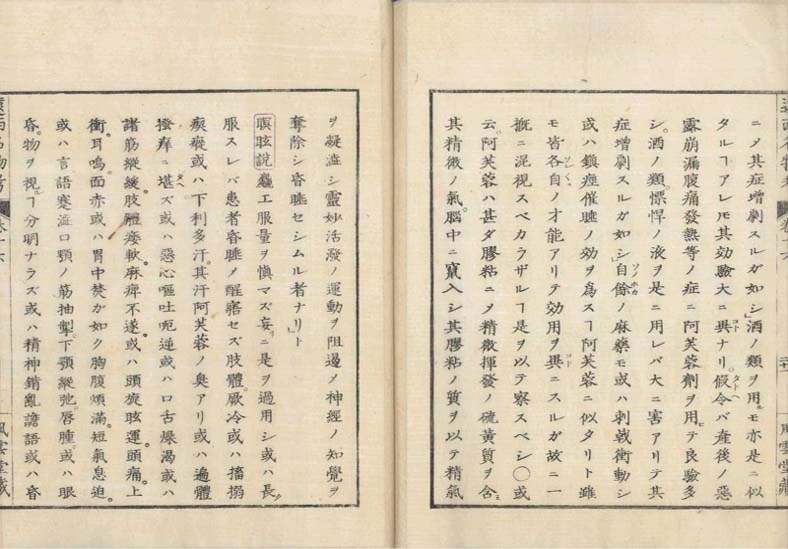 ニメ其症增劇スルガ如シ」酒ノ類ヲ用ルモ亦是ニ似
タルヿアレモ其効驗大ニ異ナリ假令バ産後ノ惡
露崩漏腹痛發熱等ノ症ニ阿芙蓉劑ヲ用テ良驗多
シ酒ノ類慓悍ノ液ヲ是ニ用レバ大ニ害アリテ其
症增劇スルガ如シ」自餘ノ麻藥モ或ハ刺戟衝動シ
或ハ鎮痙催睡ノ効ヲ爲スヿ阿芙蓉ニ似タリト雖
モ皆各自ノ才能アリテ効用ヲ異ニスルガ故ニ一
概ニ混視スベカラザルヿ是ヲ以テ察スベシ○或
云阿芙蓉ハ甚ダ膠粘ニメ精微揮發ノ硫黄質ヲ含ミ
其精微ノ氣腦中ニ竄入シ其膠粘ノ質ヲ以テ精氣
ヲ凝澁シ靈妙活潑ノ運動ヲ阻遏メ神經ノ知覺ヲ
奪除シ昏睡セシムル者ナリト
瞑眩說 麁工服量ヲ愼マズ妄ニ是ヲ過用シ或ハ長
服スレバ患者昏睡メ醒寤セズ肢體厥冷或ハ搐搦
瘈瘲或ハ下利多汗其汗阿芙蓉ノ臭アリ或ハ遍體
搔痒ニ堪ズ或ハ惡心嘔吐呃逆或ハ口舌燥渇或ハ
諸筋縱緩肢體痿軟麻痺不遂或ハ頭旋眩運頭痛上
衝耳鳴面赤或ハ胃中焚ガ如ク胸腹煩滿短氣息迫
或ハ言語蹇澁口頰ノ筋抽掣下顎縱弛唇腫或ハ眼
昏物ヲ視ルヿ分明ナラズ或ハ精神錯亂譫語或ハ昏
風雲堂藏